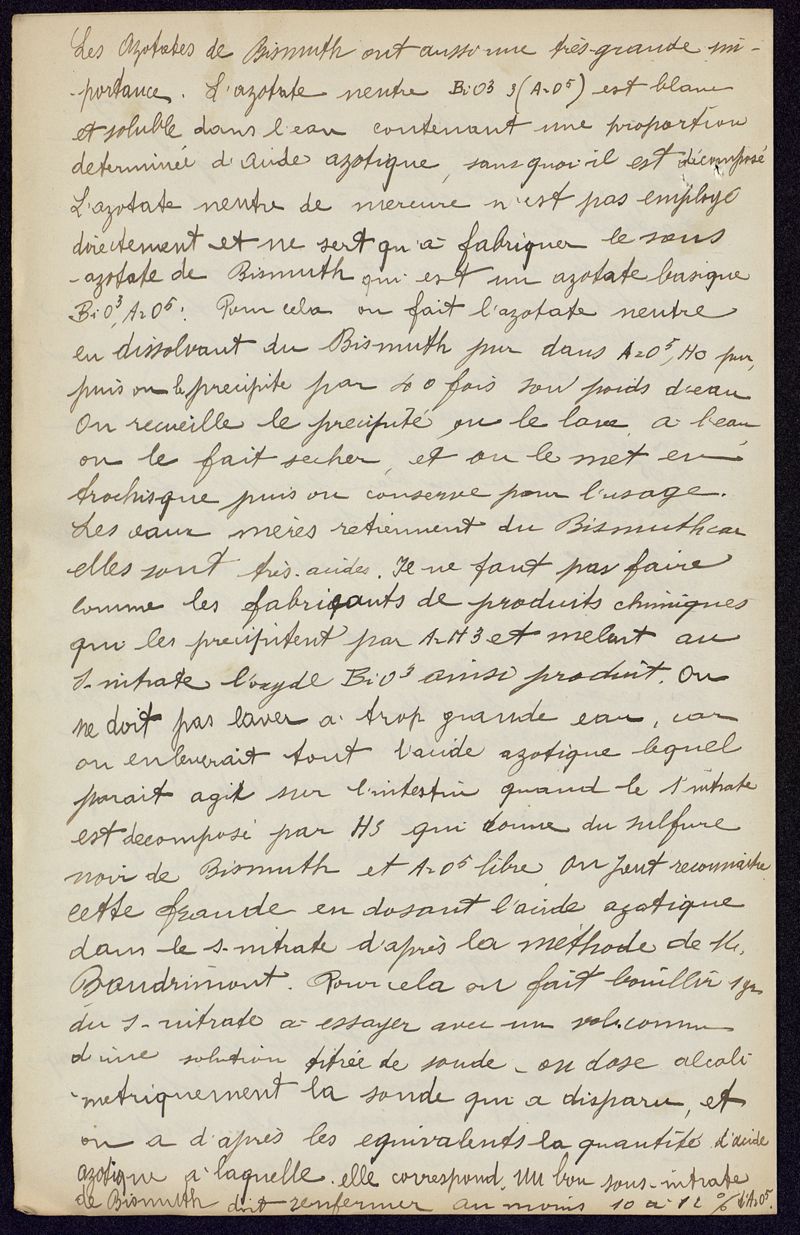 Les Azotates de Bismuth ont aussi une très grande im-
-portance. L'azotate neutre BiO3 3(AzO5) est blanc
et soluble dans l'eau contenant une proportion
determinée d'acide azotique, sans quoi il est décomposé
L'azotate neutre de mercure n'est pas employé
directement et ne sert qu'à fabriquer le sous
-azotate de Bismuth qui est un azotate basique
BiO3, AzO5. Pour cela on fait l'azotate neutre
en dissolvant du Bismuth pur dans AzO5, HO pur,
puis on le precipite par 40 fois son poids d'eau
On recueille le precipité on le lave, a l'eau
on le fait secher, et on le met en
trochisque puis on conserve pour l'usage.
Les eaux mères retiennent du Bismuth car
elles sont très-acides. Il ne faut pas faire
comme les fabriquants de produits chimiques
qui les precipitent par AzH3 et melent au
S-nitrate l'oxyde BiO3 ainsi produit. On
ne doit pas laver a trop grande eau, car
on enleverait tout l'acide azotique lequel
parait agit sur l'intestin quand le S nitrate
est decomposé par HS qui donne du sulfure
noir de Bismuth et AzO5 libre. On peut reconnaitre
cette fraude en dosant l'acide azotique
dans le s-nitrate d'après la méthode de M.
Baudrimont. Pour cela on fait bouillir 1 gr
du S-nitrate a essayer avec un vol. connu
d'une solution titrée de soude - on dose alcali
-metriquement la soude qui a disparu, et
on a d'après les equivalents la quantité d'acide
azotique à laquelle elle correspond. Un bon sous-nitrate
de Bismuth doit renfermer au moins 10 à 12 % d'AzO5.